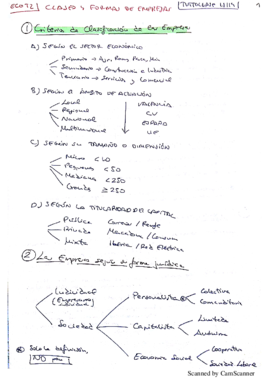 ECO T2] CLASES Y FORMAS DE EMPRESAS
① Criterios de Clasificación de las Empresas
A) SEGÚN EL SECTOR ECONÓMICO
Primario → Agr, Pesca,
Secundario → Construcción e Industria
Terciario → Servicios y Comercial
B) SEGÚN EL ÁMBITO DE ACTUACIÓN
Local VALENCIA
Regional CV
Nacional ESPAÑA
Multinacional UE
C) SEGÚN SU TAMAÑO O DIMENSIÓN
Micro < 10
Pequeña < 50
Mediana < 250
Grande ≥ 250
D) SEGÚN LA TITULARIDAD DEL CAPITAL
Pública Correos / Renfe
Privada Mercadona / Consum
Mixta Iberia / Red Eléctrica
② La Empresa según su forma jurídica
Individual
(Empresario individual)
Sociedad
Personalista
Colectiva
Comanditaria
Capitalista
Limitada
Anónima
Economía Social
Cooperativa
Sociedad Laboral
Solo la definición,
NO
Scanned by CamScanner